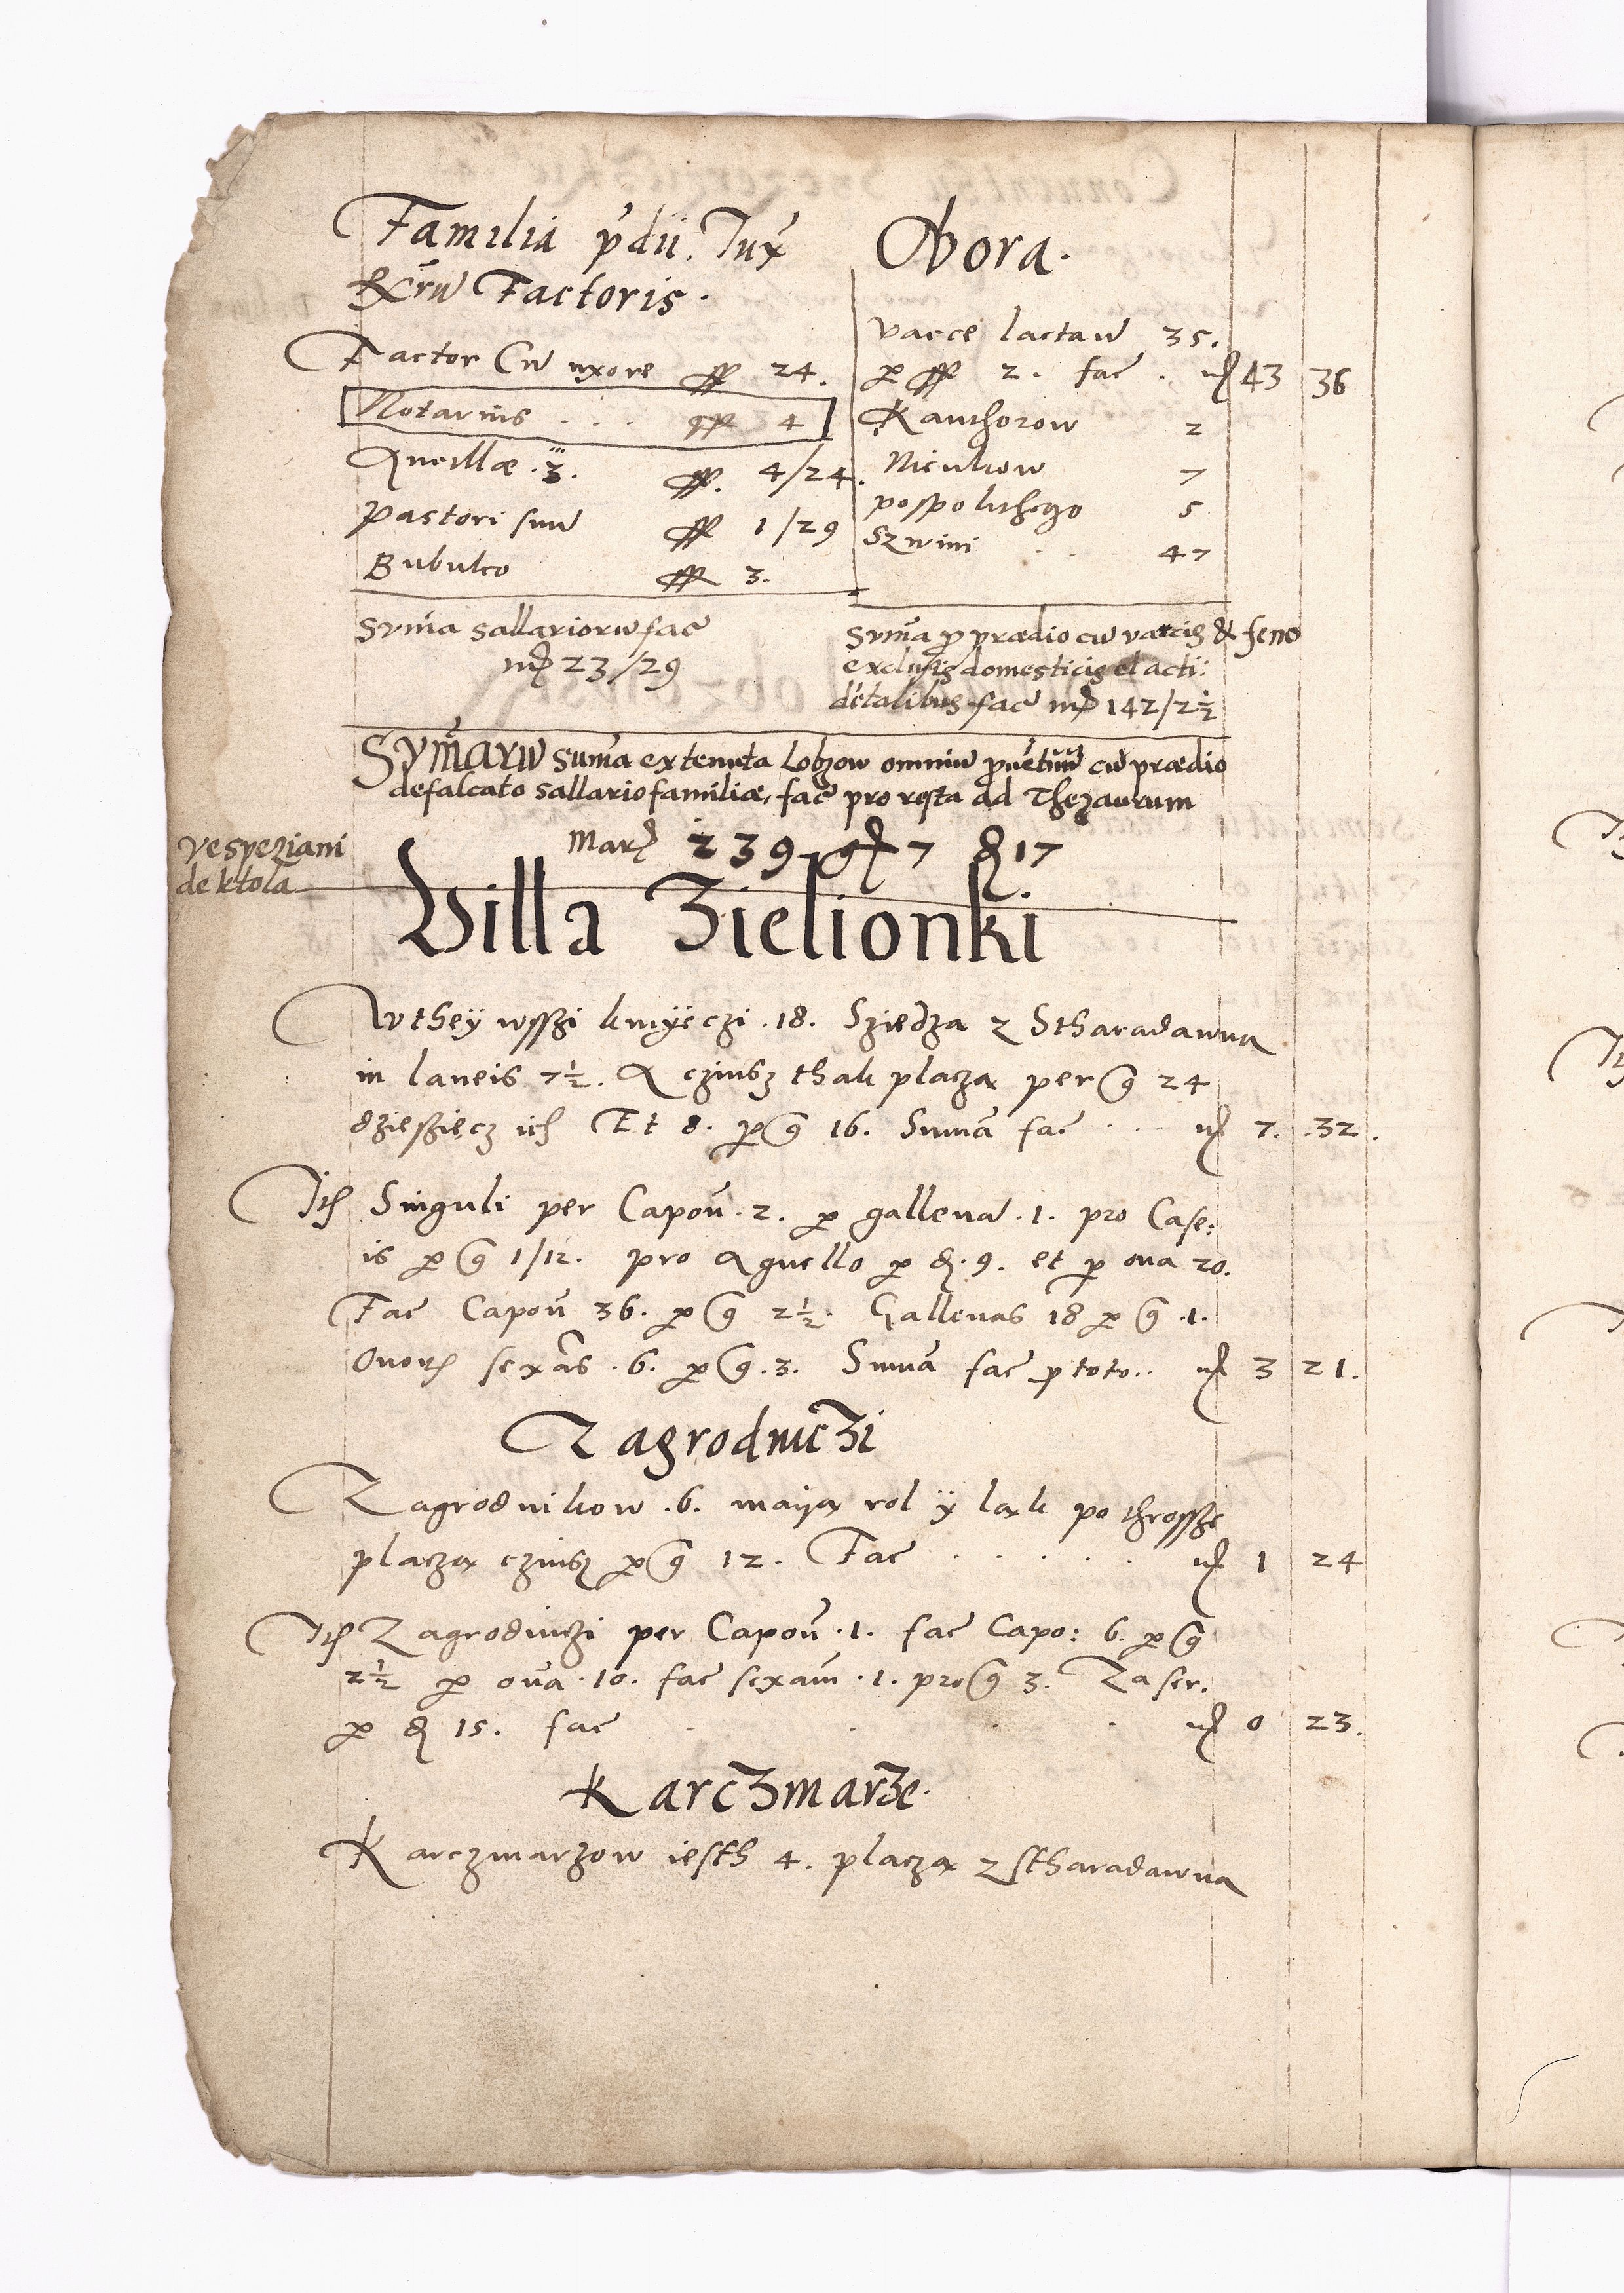 Familia p̃dii. Jux̃
Rr̃ũ Factoris.
Factor Cũ uxore ff 24.
Notarius . . . ff 4
Ancillæ .3. ff. 4/24.
Pastori suũ ff 1/29
Bubulco ff 3.
Sum̃a sallariorũ fac̃
mр 23/29
Obora.
Vacce lactaũ 35.
per ff 2. fac̃ . mр 43 36
Kanthorow 2
Nieukow 7
pospolithego 5
Szwini . . 47
Sum̃a p prædio cũ vaccis & feno
exclusis domesticis el acti:
dẽtalibus fac̃ mр 142/2½
Sum̃arũ sum̃a ex tenuta Lobzow omniũ ṽetuũ cũ prædio
defalcato sallario familiæ, fac̃ pro resta ad Thezaurum
Marc 239 gr 7 d 17
Vespeziani
de ktola
Villa Zielionki
W they wsszi kmyeczi .18. Sziedza z Stharadawna
in laneis 7½. A czinsz thak placza per g 24
dziesziecz ich Et 8. per g 16. Sum̃a fac̃ . . . mр 7. 32.
Itē Singuli per Capoñ .2. per gallenã .1. pro Case:
is per g 1/12. pro Agnello per d. 9. et per ova 20.
Fac̃ Capoñ 36. per g 2½. Gallenas 18 per g .1.
Ovorū sexãs .6. per g .3. Sum̃a fac̃ p toto.. mр 3 21.
Zagrodniczi
Zagrodnikow .6. maija rol ÿ lak po throssze
placza czinsz per g 12. Fac̃ . . . . . mр 1 24
Itē Zagrodniczi per Capoñ .1. fac̃ Capo: 6. per g
2½ per ova .10. fac̃ sexam̃ .1. pro g 3. Za ser.
per d 15. fac̃ . . . . mр 0 23.
Karczmarze.
Karczmarzow iesth 4. placza z stharadawna